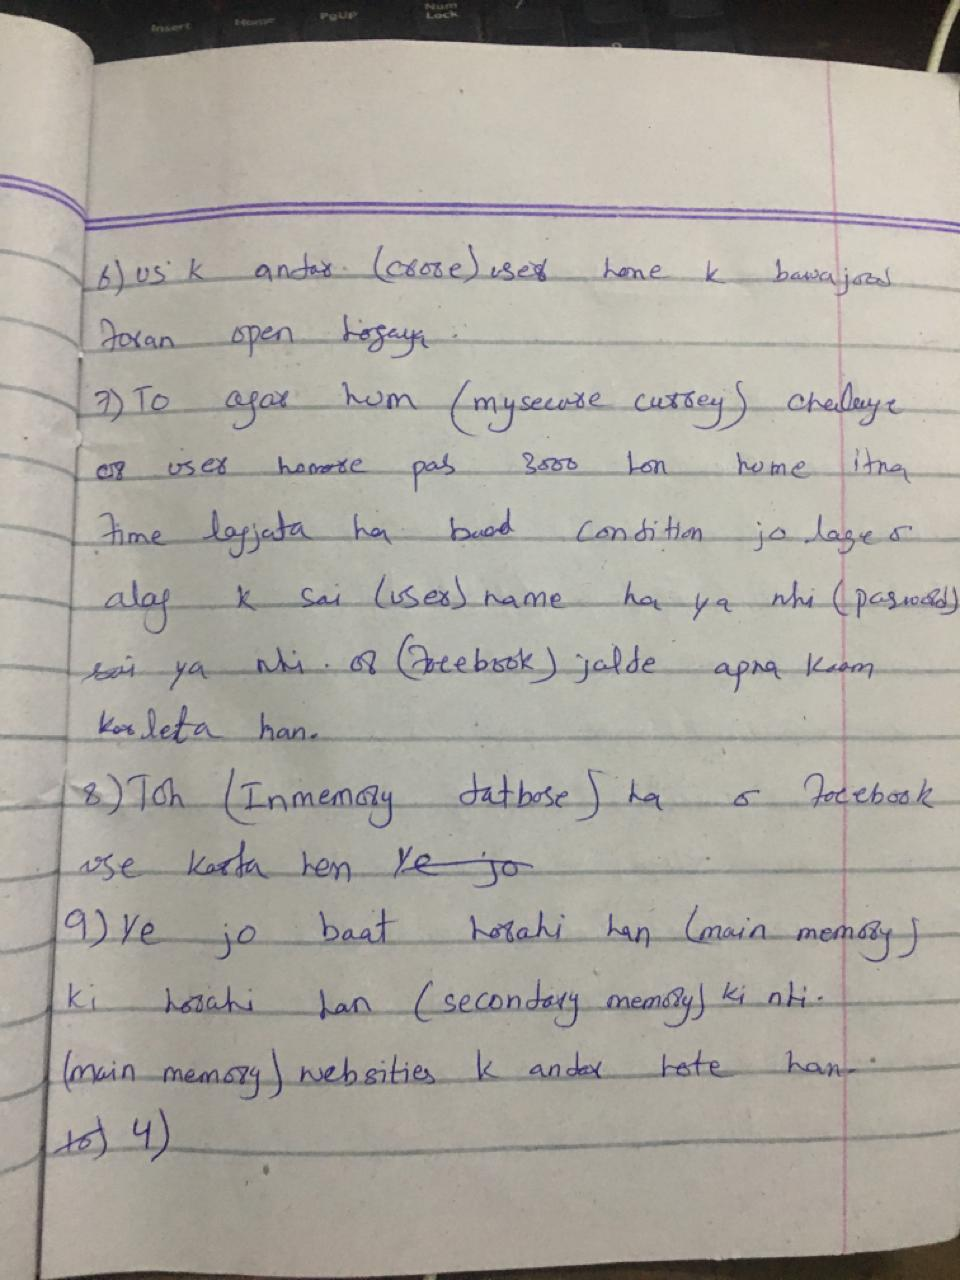 Insert Home PgUp Num Lock
6) us k andar (crore) user hone k bawajood
foran open hogaya.
7) To agar hum (mysecure currey) chelaye
or user hamare pas 3000 hon home itna
time lagjata ha baad condition jo lage
alag k sai (user) name ha ya nhi (pasword)
sai ya nhi. or (Facebook) jalde apna kaam
karleta han.
8) Toh (Inmemory datbase) ha Facebook
use karta hen ye jo
9) ye jo baat horahi han (main memory)
ki horahi han (secondary memory) ki nhi.
(main memory) websities k andar hote han.
10) 4)